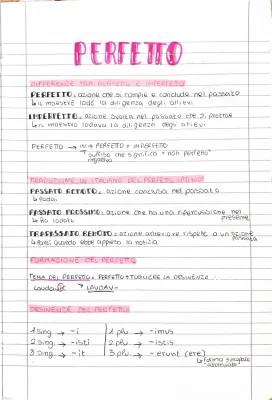 PERFETTO
DIFFERENZE TRA PERFETTO E IMPERFETTO
PERFETTO: azione che si compie e conclude nel passato
↳ il maestro lodò la diligenza degli allievi
IMPERFETTO: azione svolta nel passato che si protrae
↳ il maestro lodava la diligenza degli allievi
PERFETTO → IN → PERFETTO = IMPERFETTO
suffisso che significa "non perfetto"
negativa
TRADUZIONE IN ITALIANO DEL PERFETTO LATINO
PASSATO REMOTO: azione conclusa nel passato
↳ lodai
PASSATO PROSSIMO: azione che ha una ripercussione nel
presente
↳ ho lodato
TRAPASSATO REMOTO: azione anteriore rispetto a un'azione
passata
quando ebbe appreso la notizia
FORMAZIONE DEL PERFETTO
TEMA DEL PERFETTO: PERFETTO + TOGLIERE LA DESINENZA
→ LAUDAV-
DESINENZE DEL PERFETTO
1 sing → -i 1 plu → -imus
2 sing → -isti 2 plu → -istis
3 sing → -it 3 plu → -erunt (ere)
↳ forma